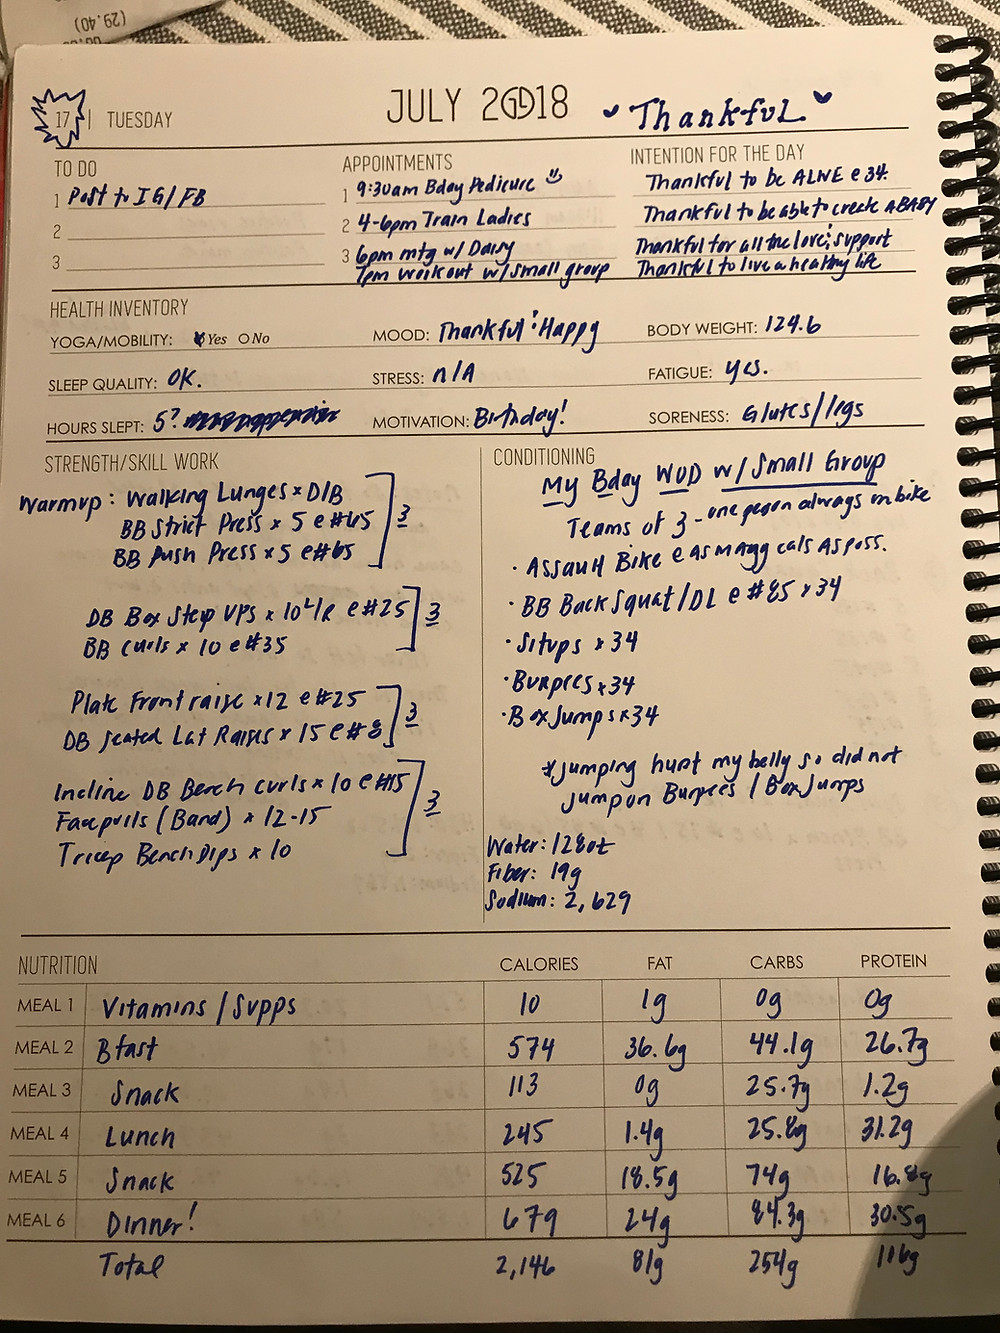 (29.40)
17 | TUESDAY
JULY 2018
Thankful
TO DO
1 Post to IG/FB
2
3
APPOINTMENTS
1 9:30am Bday Pedicure
2 4-6pm Train Ladies
3 6pm mtg w/
7pm workout w/ small group
INTENTION FOR THE DAY
Thankful to be ALIVE @ 34.
Thankful to be able to create A BABY
Thankful for all the love & support
Thankful to live a healthy life
HEALTH INVENTORY
YOGA/MOBILITY: Yes No
MOOD: Thankful & Happy
BODY WEIGHT: 124.6
SLEEP QUALITY: OK.
STRESS: n/A
FATIGUE: yes.
HOURS SLEPT: 5?
MOTIVATION: Birthday!
SORENESS: Glutes/legs
STRENGTH/SKILL WORK
Warmup: Walking Lunges x D/B
BB Strict Press x 5 @ #65 3
BB push Press x 5 @ #65
DB Box Step UPs x 10 L/R @ #25 3
BB curls x 10 @ #35
Plate Front raise x 12 @ #25 3
DB seated Lat Raises x 15 @ #8
Incline DB Bench curls x 10 @ #15
Facepulls (Band) x 12-15 3
Tricep Bench Dips x 10
CONDITIONING
My Bday WOD w/ Small Group
Teams of 3 - one person always on bike
· Assault Bike @ As MAny cals As poss.
· BB Back Squat/DL @ #85 x 34
· Situps x 34
· Burpees x 34
· Box Jumps x 34
*jumping hurt my belly so did not
jump on Burpees / Box Jumps
Water: 128oz
Fiber: 19g
Sodium: 2,629
NUTRITION CALORIES FAT CARBS PROTEIN
MEAL 1 Vitamins / Supps 10 1g 0g 0g
MEAL 2 Bfast 574 36.6g 44.1g 26.7g
MEAL 3 Snack 113 0g 25.7g 1.2g
MEAL 4 Lunch 245 1.4g 25.8g 31.2g
MEAL 5 Snack 525 18.5g 74g 16.8g
MEAL 6 Dinner! 679 24g 84.3g 30.5g
Total 2,146 81g 254g 116g